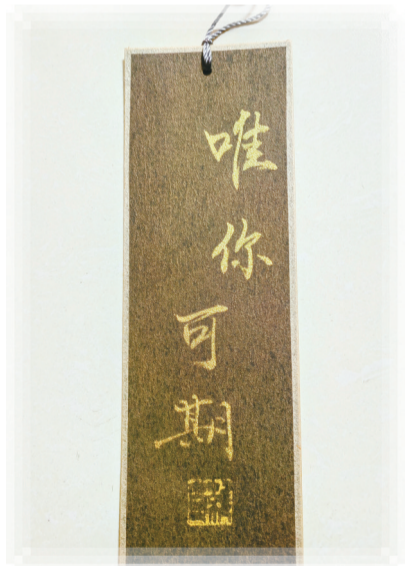 唯你可期